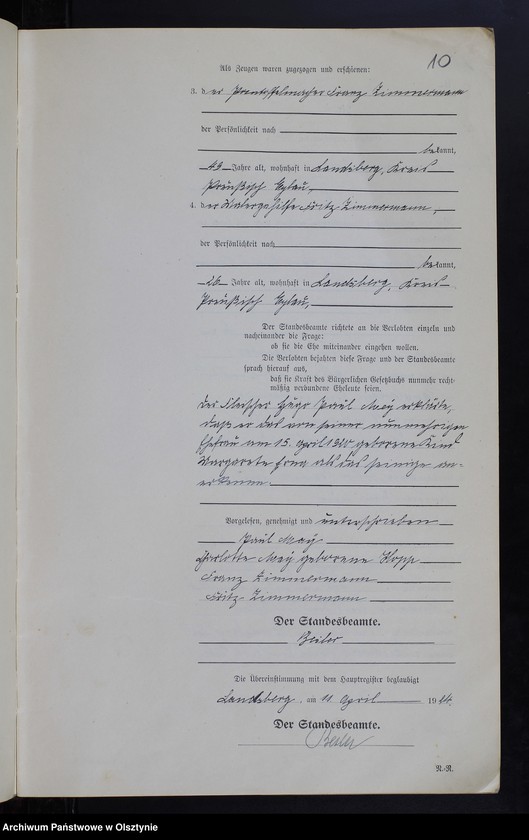 10
Als Zeugen waren zugezogen und erschienen:
3. der Pantoffelmacher Franz Zimmermann
der Persönlichkeit nach
bekannt,
43 Jahre alt, wohnhaft in Landsberg, Kreis
Preußisch Eylau,
4. der Malergehilfe Fritz Zimmermann,
der Persönlichkeit nach
bekannt,
26 Jahre alt, wohnhaft in Landsberg, Kreis
Preußisch Eylau,
Der Standesbeamte richtete an die Verlobten einzeln und
nacheinander die Frage:
ob sie die Ehe miteinander eingehen wollen.
Die Verlobten bejahten diese Frage und der Standesbeamte
sprach hierauf aus,
daß sie kraft des Bürgerlichen Gesetzbuchs nunmehr recht-
mäßig verbundene Eheleute seien.
Der Fleischer Hugo Paul May erklärte,
daß er das von seiner nunmehrigen
Ehefrau am 15. April geborene Kind
Margarete Erna als das seinige an-
erkenne.
Vorgelesen, genehmigt und unterschrieben
Paul May
Charlotte May geborene Hopp
Franz Zimmermann
Fritz Zimmermann
Der Standesbeamte.
Beiler
Die Übereinstimmung mit dem Hauptregister beglaubigt
Landsberg, am 11. April 1914.
Der Standesbeamte.
Beiler
N.-N.
Archiwum Państwowe w Olsztynie